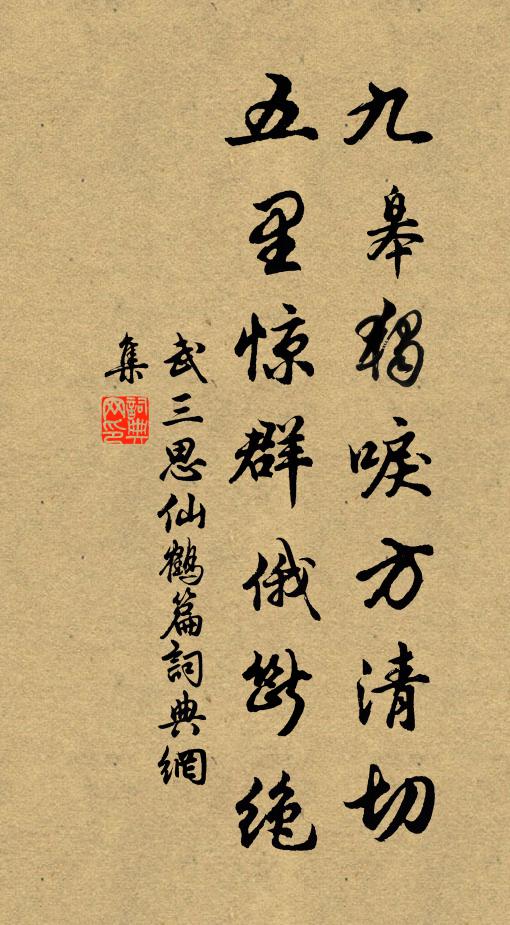 九皋獨唳方清切
五里惊群俄斷绝
武三思仙鶴篇詞典網
集
詞典网印